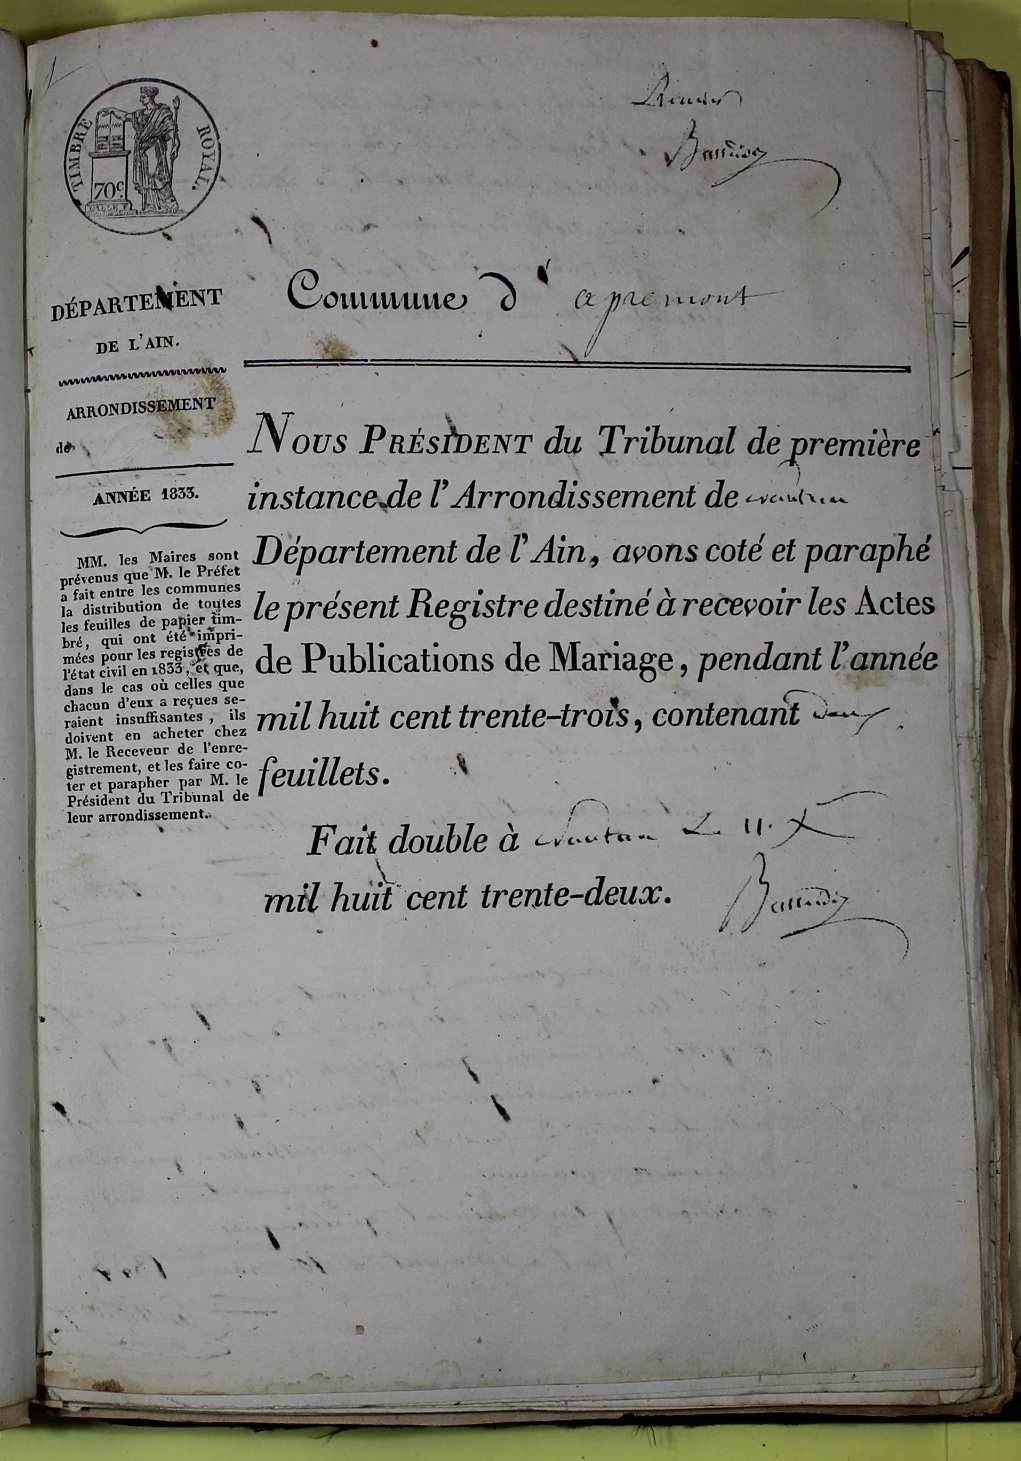 1
TIMBRE ROYAL.
70c
Premier
DÉPARTEMENT
DE L'AIN.
ARRONDISSEMENT
de
ANNÉE 1833.
MM. les Maires sont
prévenus que M. le Préfet
a fait entre les communes
la distribution de toutes
les feuilles de papier tim-
bré, qui ont été impri-
mées pour les registres de
l'état civil en 1833, et que,
dans le cas où celles que
chacun d'eux a reçues se-
raient insuffisantes, ils
doivent en acheter chez
M. le Receveur de l'enre-
gistrement, et les faire co-
ter et parapher par M. le
Président du Tribunal de
leur arrondissement.
Commune d' apremont
NOUS PRÉSIDENT du Tribunal de première
instance de l'Arrondissement de nantua
Département de l'Ain, avons coté et paraphé
le présent Registre destiné à recevoir les Actes
de Publications de Mariage, pendant l'année
mil huit cent trente-trois, contenant deux
feuillets.
Fait double à nantua Le 11. X
mil huit cent trente-deux.